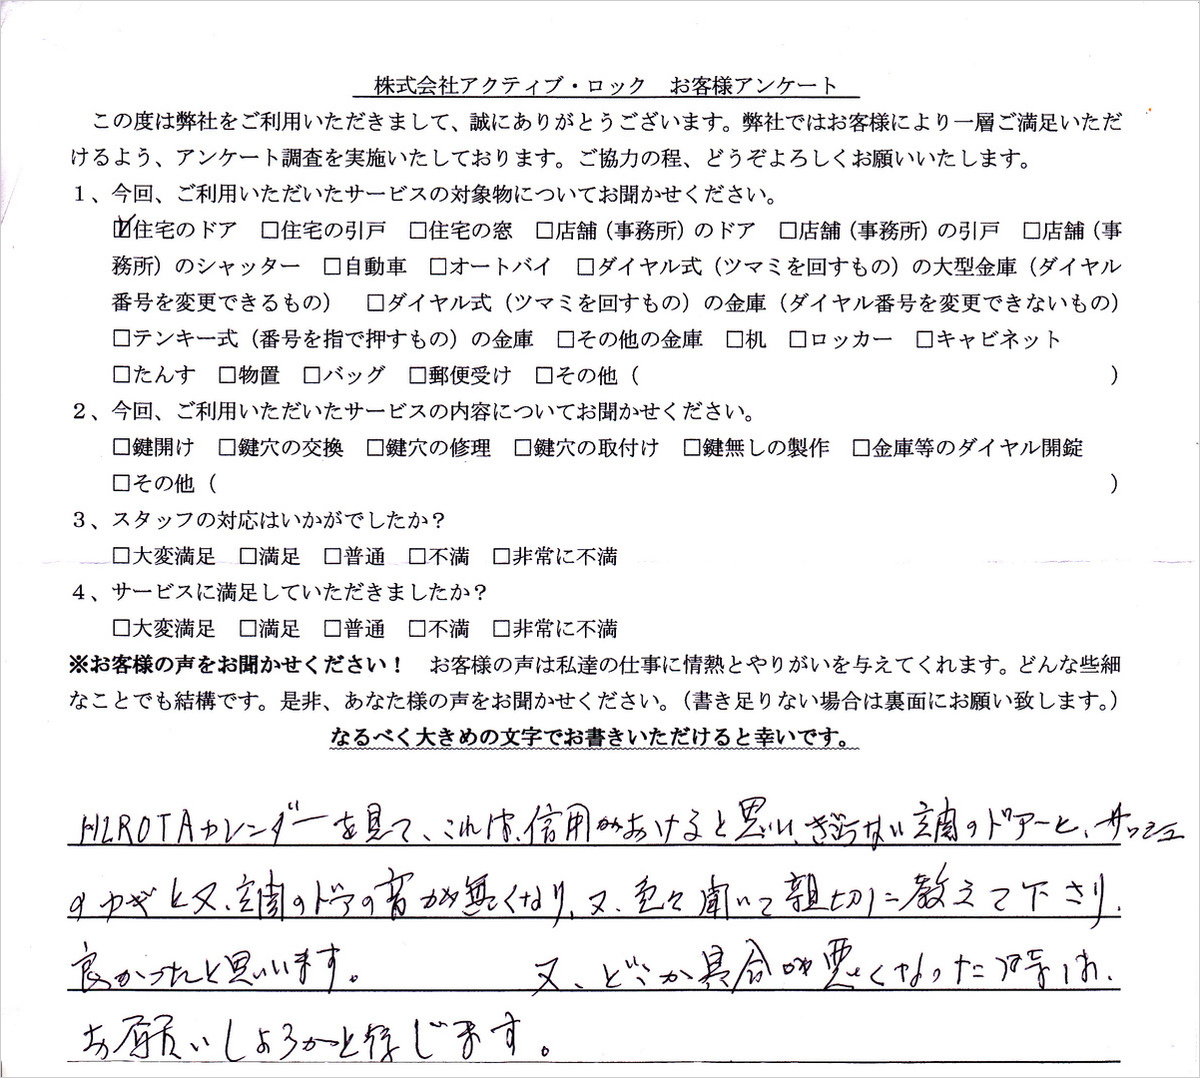 株式会社アクティブ・ロック　お客様アンケート
この度は弊社をご利用いただきまして、誠にありがとうございます。弊社ではお客様により一層ご満足いただ
けるよう、アンケート調査を実施いたしております。ご協力の程、どうぞよろしくお願いいたします。
１、今回、ご利用いただいたサービスの対象物についてお聞かせください。
☑住宅のドア　□住宅の引戸　□住宅の窓　□店舗（事務所）のドア　□店舗（事務所）の引戸　□店舗（事
務所）のシャッター　□自動車　□オートバイ　□ダイヤル式（ツマミを回すもの）の大型金庫（ダイヤル
番号を変更できるもの）　□ダイヤル式（ツマミを回すもの）の金庫（ダイヤル番号を変更できないもの）
□テンキー式（番号を指で押すもの）の金庫　□その他の金庫　□机　□ロッカー　□キャビネット
□たんす　□物置　□バッグ　□郵便受け　□その他（　　　　　）
２、今回、ご利用いただいたサービスの内容についてお聞かせください。
□鍵開け　□鍵穴の交換　□鍵穴の修理　□鍵穴の取付け　□鍵無しの製作　□金庫等のダイヤル開錠
□その他（　　　　　）
３、スタッフの対応はいかがでしたか？
□大変満足　□満足　□普通　□不満　□非常に不満
４、サービスに満足していただきましたか？
□大変満足　□満足　□普通　□不満　□非常に不満
※お客様の声をお聞かせください！　お客様の声は私達の仕事に情熱とやりがいを与えてくれます。どんな些細
なことでも結構です。是非、あなた様の声をお聞かせください。（書き足りない場合は裏面にお願い致します。）
なるべく大きめの文字でお書きいただけると幸いです。
HIROTAカレンダーを見て、これは、信用がおけると思い、ぎらない玄関のドアーと、サッシュ
のカギと又、玄関のドアの音が無くなり、又、色々聞いて親切に教えて下さり、
良かったと思います。　又、どこか具合が悪くなった時は、
お願いしようかと存じます。